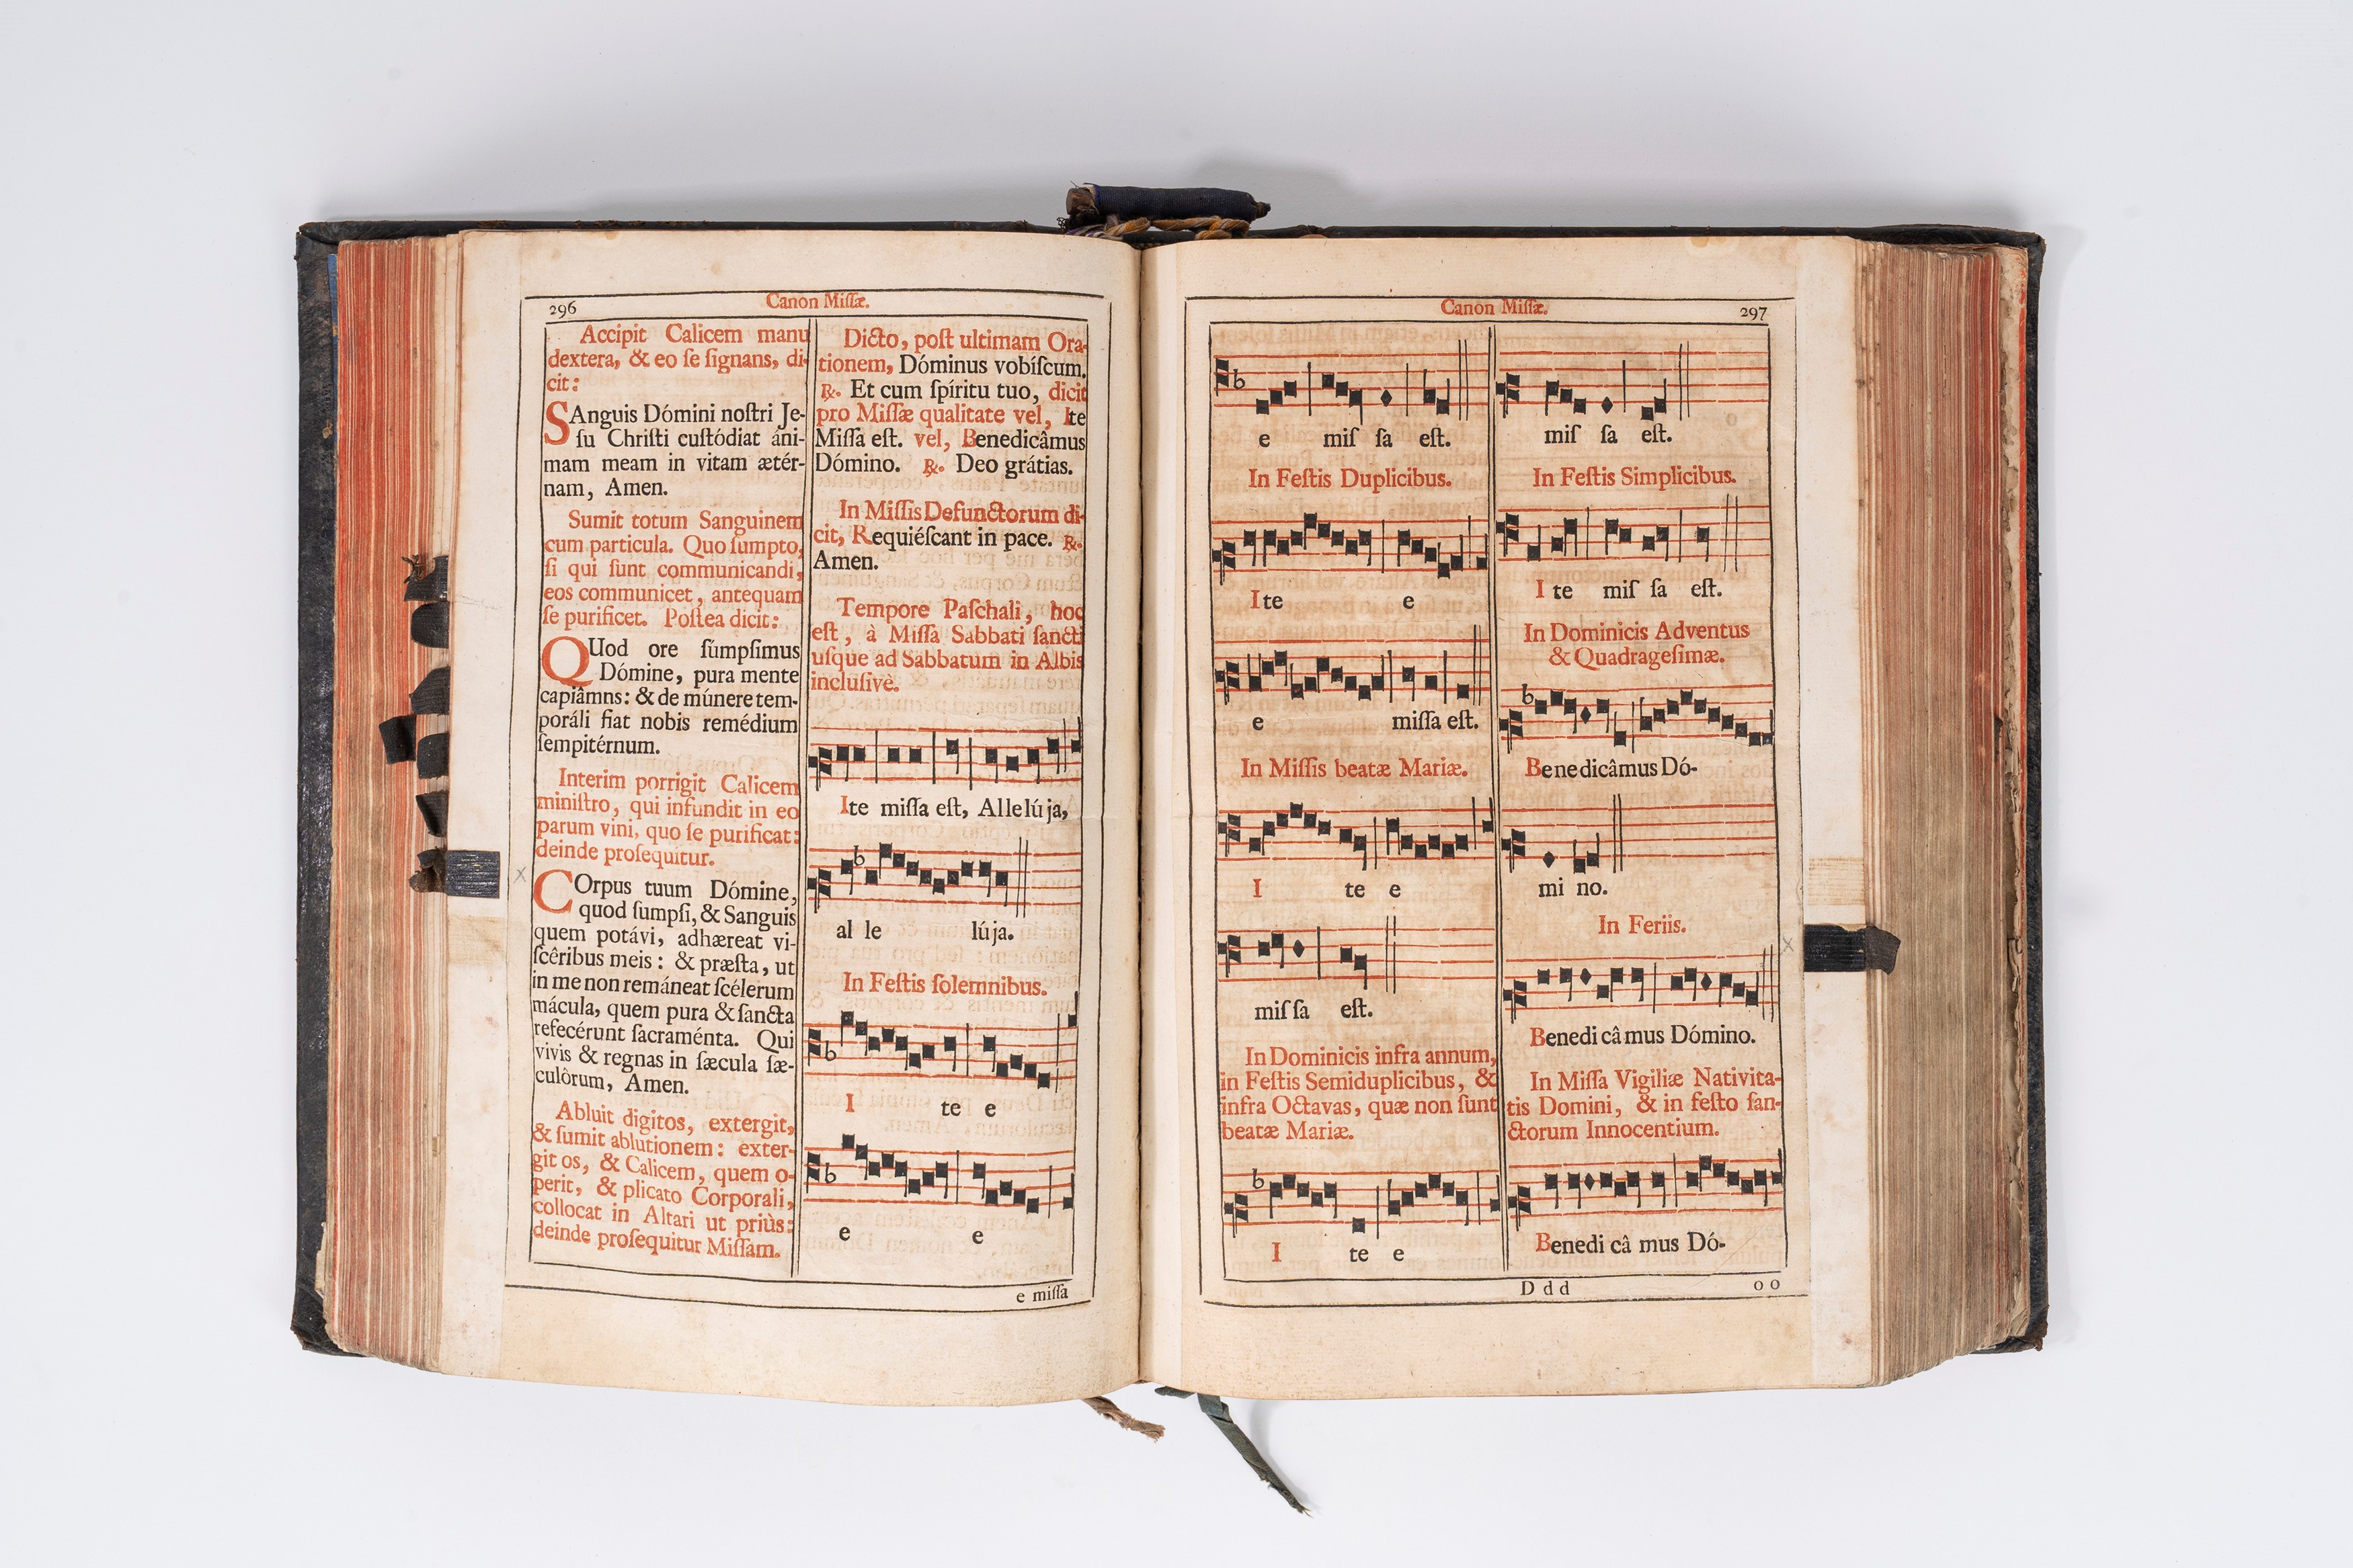 296
Canon Miſſæ.
Accipit Calicem manu
dextera, & eo ſe ſignans, di-
cit:
SAnguis Dómini noſtri Je-
ſu Chriſti cuſtódiat áni-
mam meam in vitam ætér-
nam, Amen.
Sumit totum Sanguinem
cum particula. Quo ſumpto,
ſi qui ſunt communicandi,
eos communicet, antequam
ſe purificet. Poſtea dicit:
QUod ore ſúmpſimus
Dómine, pura mente
capiâmns: & de múnere tem-
poráli fiat nobis remédium
ſempitérnum.
Interim porrigit Calicem
miniſtro, qui infundit in eo
parum vini, quo ſe purificat:
deinde proſequitur.
COrpus tuum Dómine,
quod ſumpſi, & Sanguis
quem potávi, adhæreat vi-
ſcêribus meis: & præſta, ut
in me non remáneat ſcélerum
mácula, quem pura & ſancta
refecérunt ſacraménta. Qui
vivis & regnas in ſæcula ſæ-
culôrum, Amen.
Abluit digitos, extergit,
& ſumit ablutionem: exter-
git os, & Calicem, quem o-
perit, & plicato Corporali,
collocat in Altari ut priùs:
deinde proſequitur Miſſam.
Dicto, poſt ultimam Ora-
tionem, Dóminus vobíſcum.
℟. Et cum ſpíritu tuo, dicit
pro Miſſæ qualitate vel, Ite
Miſſa eſt. vel, Benedicâmus
Dómino. ℟. Deo grátias.
In Miſſis Defunctorum di-
cit, Requiéſcant in pace. ℟.
Amen.
Tempore Paſchali, hoc
eſt, à Miſſa Sabbati ſancti
uſque ad Sabbatum in Albis
incluſivè.
Ite miſſa eſt, Allelú ja,
al le lúja.
In Feſtis ſolemnibus.
I te e
e e
e miſſa
Canon Miſſæ.
297
e miſ ſa eſt.
In Feſtis Duplicibus.
Ite e
e miſſa eſt.
In Miſſis beatæ Mariæ.
I te e
miſ ſa eſt.
In Dominicis infra annum,
in Feſtis Semiduplicibus, &
infra Octavas, quæ non ſunt
beatæ Mariæ.
I te e
miſ ſa eſt.
In Feſtis Simplicibus.
I te miſ ſa eſt.
In Dominicis Adventus
& Quadrageſimæ.
Benedicâmus Dó-
mi no.
In Feriis.
Benedi câ mus Dómino.
In Miſſa Vigiliæ Nativita-
tis Domini, & in feſto ſan-
ctorum Innocentium.
Benedi câ mus Dó-
D d d
o o